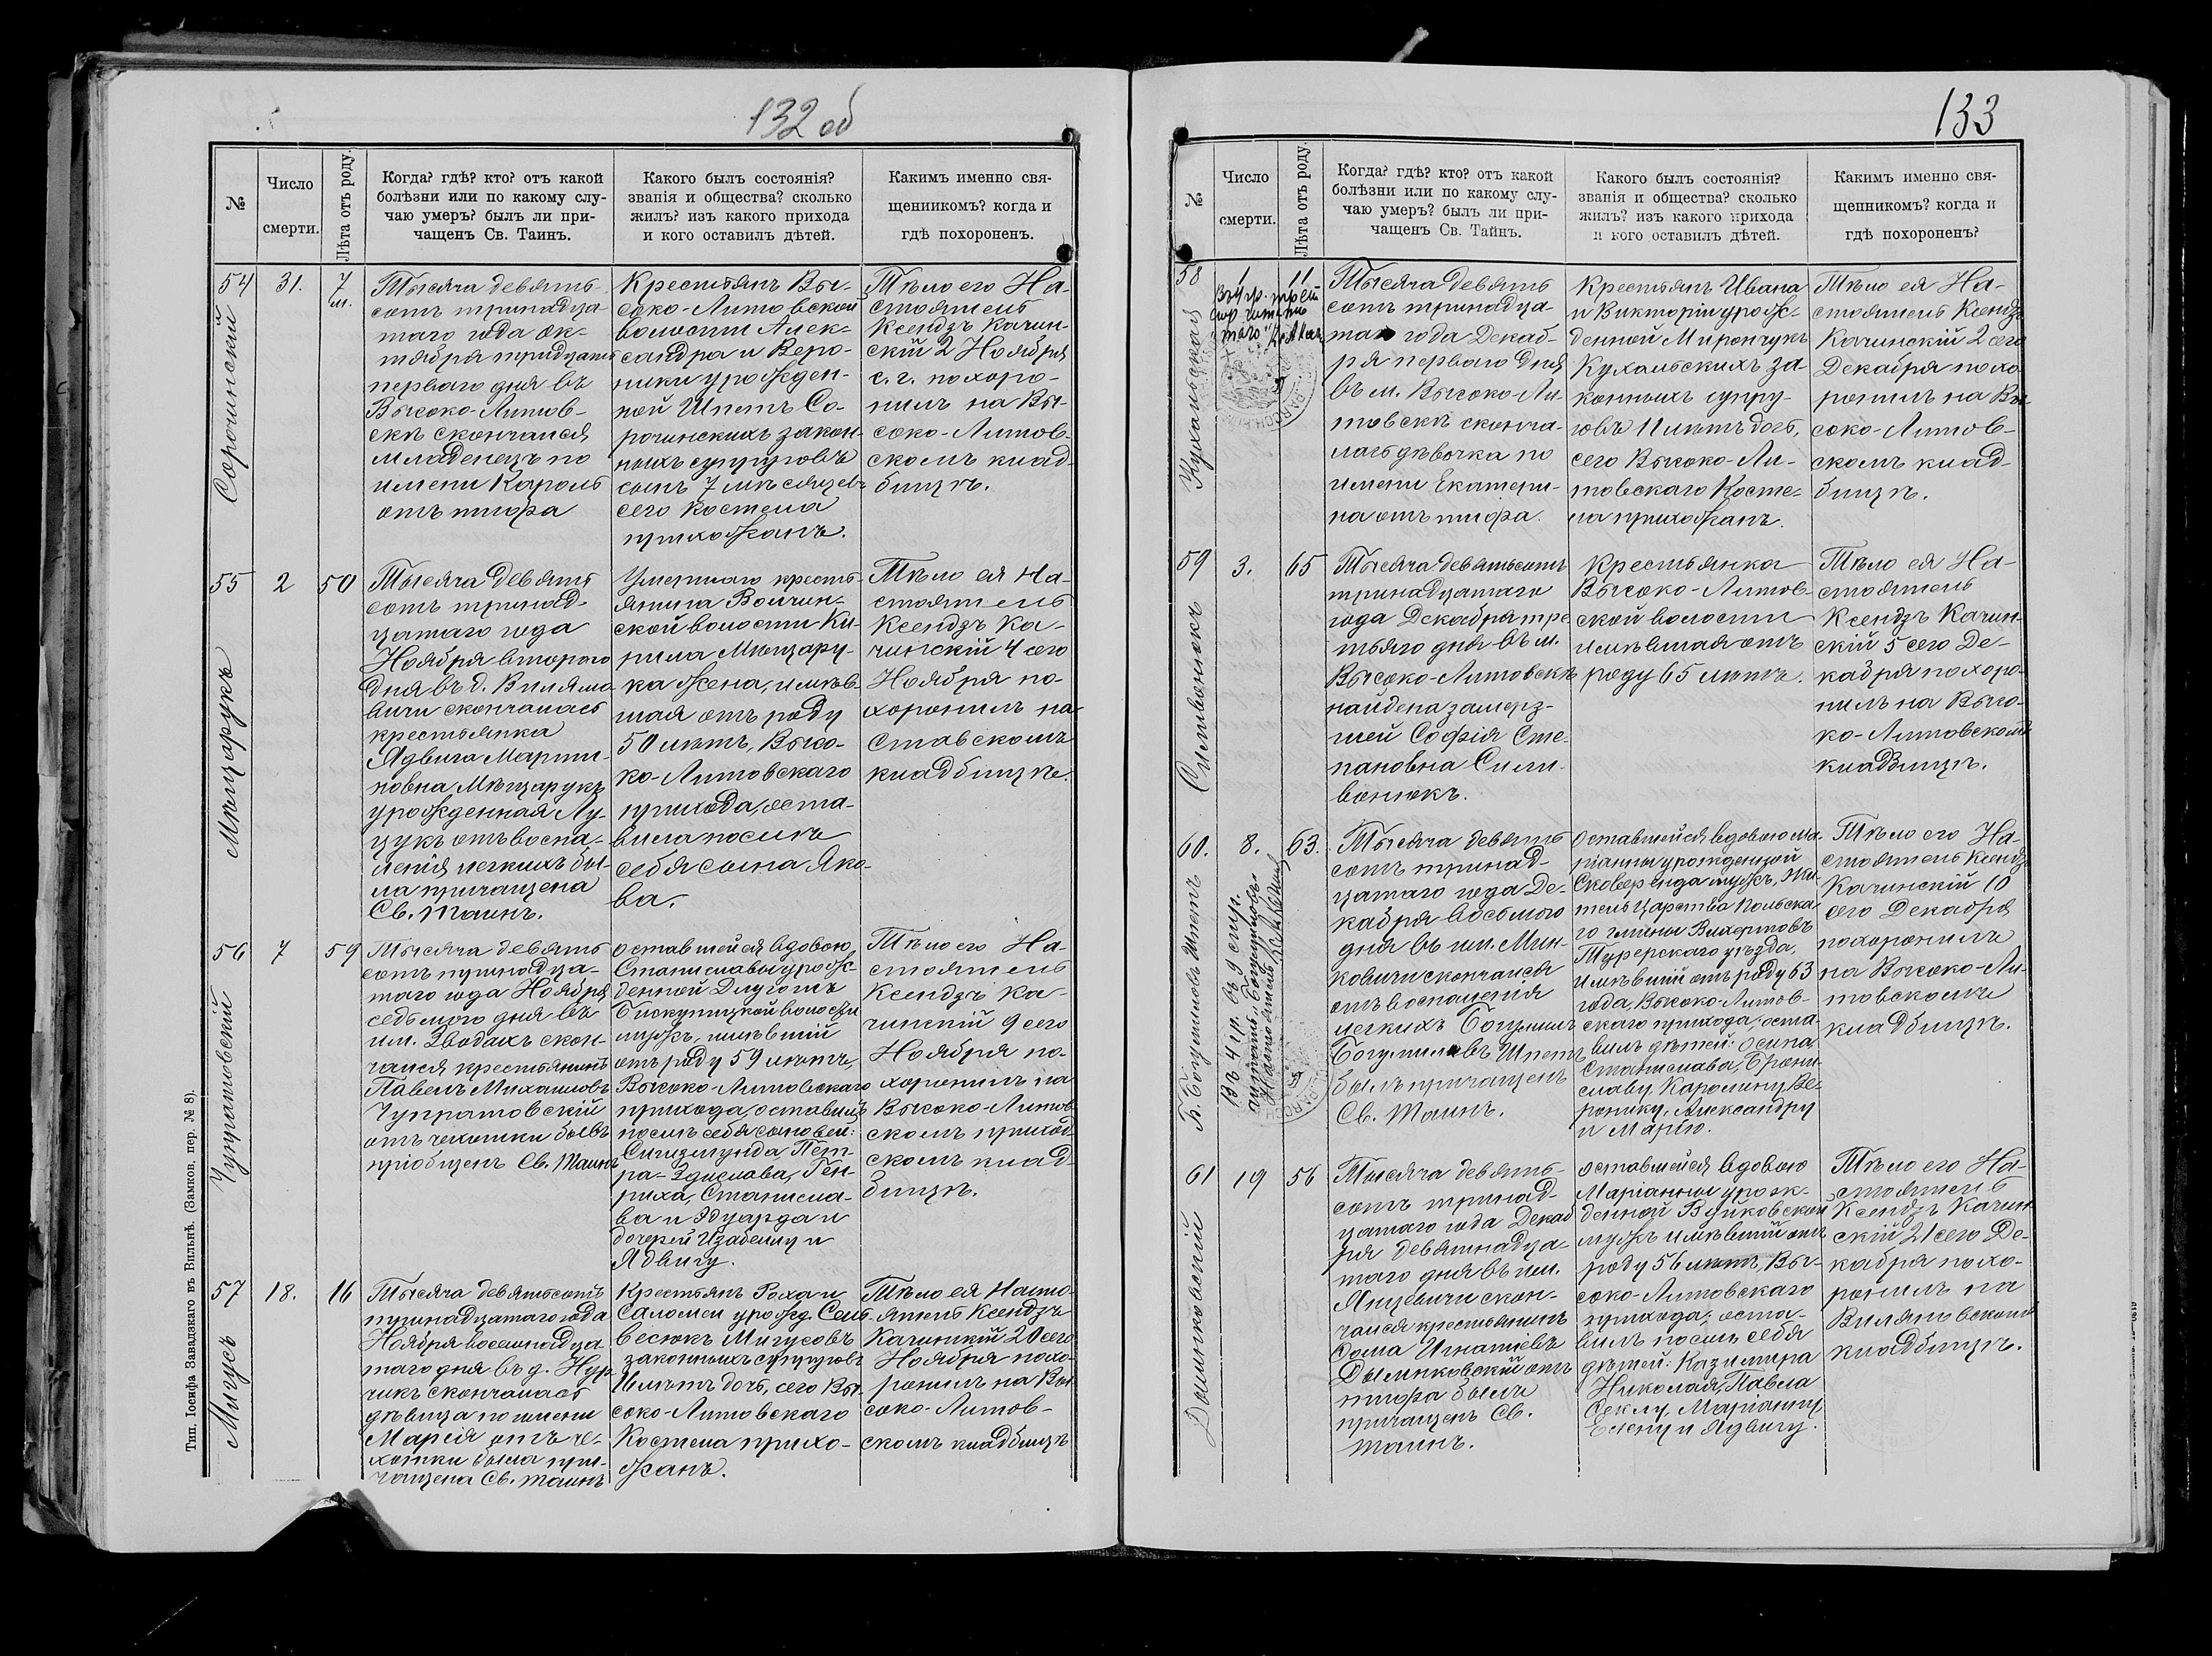 132 об
№
Число
смерти.
Лѣта отъ роду.
Когда? гдѣ? кто? отъ какой
болѣзни или по какому слу-
чаю умеръ? былъ ли при-
чащенъ Св. Таинъ.
Какого былъ состоянія?
званія и общества? сколько
жилъ? изъ какого прихода
и кого оставилъ дѣтей.
Какимъ именно свя-
щенникомъ? когда и
гдѣ похороненъ.
54
Сорочинскій
31.
7
м.
Тысяча девять-
сотъ тринадца-
таго года ок-
тября тридцать
перваго дня въ
Высоко-Литов-
скѣ скончался
младенецъ по
имени Кароль
отъ тифа
Крестьянъ Вы-
соко-Литовской
волости Алек-
сандра и Веро-
ники урожден-
ной Шпетъ Со-
рочинскихъ закон-
ныхъ супруговъ
сынъ 7 мѣсяцевъ
сего костела
прихожанъ.
Тѣло его На-
стоятель
Ксендзъ Качин-
скій 2 Ноября
с. г. похоро-
нилъ на Вы-
соко-Литов-
скомъ клад-
бищѣ.
55
Мѣщарукъ
2
50
Тысяча девять
сотъ тринад-
цатаго года
Ноября второго
дня въ д. Вилямо-
вичи скончалась
крестьянка
Ядвига Марти-
новна Мѣщарукъ
урожденная Лу-
цукъ отъ воспа-
ленія легкихъ бы-
ла причащена
Св. Таинъ.
Умершаго кресть-
янина Волчин-
ской волости Ки-
рила Мѣщару-
ка жена, имѣв-
шая отъ роду
50 лѣтъ, Высо-
ко-Литовскаго
прихода, оста-
вила послѣ
себя сына Яко-
ва.
Тѣло ея На-
стоятель
Ксендзъ Ка-
чинскій 4 сего
Ноября по-
хоронилъ на
Ставскомъ
кладбищѣ.
56
Чупратовскій
7
59
Тысяча девять
сотъ тринадца-
таго года Ноября
седьмого дня въ
им. Зводахъ скон-
чался крестьянинъ
Павелъ Михаиловъ
Чупратовскій
отъ чахотки бывъ
пріобщенъ Св. Таинъ
Оставшейся вдовою
Станиславы урож-
денной Длуголъ
Бискупицкой волости
мужъ, имѣвшій
отъ роду 59 лѣтъ,
Высоко-Литовскаго
прихода, оставилъ
послѣ себя сыновей:
Сигизмунда, Пет-
ра-Здислава, Ген-
риха, Станисла-
ва и Эдуарда и
дочерей Изабеллу и
Ядвигу.
Тѣло его На-
стоятель
Ксендзъ Ка-
чинскій 9 сего
Ноября по-
хоронилъ на
Высоко-Литов-
скомъ приход-
скомъ клад-
бищѣ.
57
Мигусъ
18.
16
Тысяча девятьсотъ
тринадцатаго года
Ноября восемнадца-
таго дня въ д. Нур-
чикъ скончалась
дѣвица по имени
Марія отъ ча-
хотки была при-
чащена Св. Таинъ
Крестьянъ Роха и
Саломеи урожд. Сель-
весюкъ Мигусовъ
законныхъ супруговъ
16 лѣтъ дочь, сего Вы-
соко-Литовскаго
Костела прихо-
жанъ.
Тѣло ея Насто-
ятель Ксендзъ
Качинскій 20 сего
Ноября похо-
ронилъ на Вы-
соко-Литов-
скомъ кладбищѣ
Тип. Іосифа Завадзкаго въ Вильнѣ. (Замков. пер. № 8).
133
№
Число
смерти.
Лѣта отъ роду.
Когда? гдѣ? кто? отъ какой
болѣзни или по какому слу-
чаю умеръ? былъ ли при-
чащенъ Св. Тайнъ.
Какого былъ состоянія?
званія и общества? сколько
жилъ? изъ какого прихода
и кого оставилъ дѣтей.
Какимъ именно свя-
щенникомъ? когда и
гдѣ похороненъ?
58
Кухальская
1
11
Тысяча девять
сотъ тринадца-
таго года Декаб-
ря перваго дня
въ м. Высоко-Ли-
товскѣ сконча-
лась дѣвочка по
имени Екатери-
на отъ тифа.
Крестьянъ Ивана
и Викторіи урож-
денной Мирончукъ
Кухальскихъ за-
конныхъ супру-
говъ 11 лѣтъ дочь,
сего Высоко-Ли-
товскаго Косте-
ла прихожанъ.
Тѣло ея На-
стоятель Ксендзъ
Качинскій 2 сего
Декабря похо-
ронилъ на Вы-
соко-Литов-
скомъ клад-
бищѣ.
59
Сильвонюкъ
3.
65
Тысяча девятьсотъ
тринадцатаго
года Декабря тре-
тьяго дня въ м.
Высоко-Литовскѣ
найдена замерз-
шей Софія Сте-
пановна Силь-
вонюкъ.
Крестьянка
Высоко-Литов-
ской волости
имѣвшая отъ
роду 65 лѣтъ.
Тѣло ея На-
стоятель
Ксендзъ Качин-
скій 5 сего Де-
кабря похоро-
нилъ на Высо-
ко-Литовскомъ
кладбищѣ.
60.
Б. Богумиловъ Шпетъ
8.
63.
Тысяча девять
сотъ тринад-
цатаго года Де-
кабря восьмого
дня въ им. Мин-
ковичи скончался
отъ воспаленія
легкихъ Богумилъ
Богумиловъ Шпетъ
былъ причащенъ
Св. Таинъ.
Оставшейся вдовою Ма-
ріанны урожденной
мужъ, жи-
тель Царства Польска-
го гмины
уѣзда,
имѣвшій отъ роду 63
года, Высоко-Литов-
скаго прихода, оста-
вилъ дѣтей: Осипа,
Станислава, Брони-
славу, Каролину, Ве-
ронику, Александру
и Марію.
Тѣло его На-
стоятель Ксендзъ
Качинскій 10
сего Декабря
похоронилъ
на Высоко-Ли-
товскомъ
кладбищѣ.
61
Дыминковскій
19
56
Тысяча девять-
сотъ тринад-
цатаго года Декаб-
ря девятнадца-
таго дня въ им.
Янцевичи скон-
чался крестьянинъ
Ѳома Игнатіевъ
Дыминковскій отъ
тифа былъ
причащенъ Св.
Таинъ.
Оставшейся вдовою
Маріанны урож-
денной Вуйковской
мужъ имѣвшій отъ
роду 56 лѣтъ, Вы-
соко-Литовскаго
прихода, оста-
вилъ послѣ себя
дѣтей: Казимира
Николая, Павла
Ѳеклу, Маріанну,
Елену и Ядвигу.
Тѣло его На-
стоятель
Ксендзъ Качин-
скій 21 сего Де-
кабря похо-
ронилъ на
Вилямовскомъ
кладбищѣ.